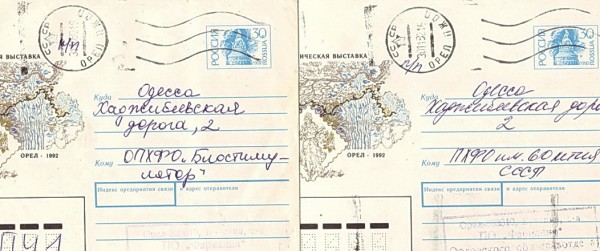 Я ВЫСТАВКА
СССР
ОРЕЛ
с/п
РОССИЯ
ROSSIJA
30
Куда Одесса
Хаджибеевская
дорога, 2
ОРЕЛ - 1992
Кому ОПХФО „Биостиму-
лятор"
Индекс предприятия связи и адрес отправителя
ИЧЕСКАЯ ВЫСТАВКА
СССР
ОРЕЛ
с/п
РОССИЯ
ROSSIJA
30
Куда Одесса
Хаджибеевская доро
2
ОРЕЛ - 1992
Кому ПХФО им. 60 летия
СССР
Индекс предприятия связи и адрес отправителя